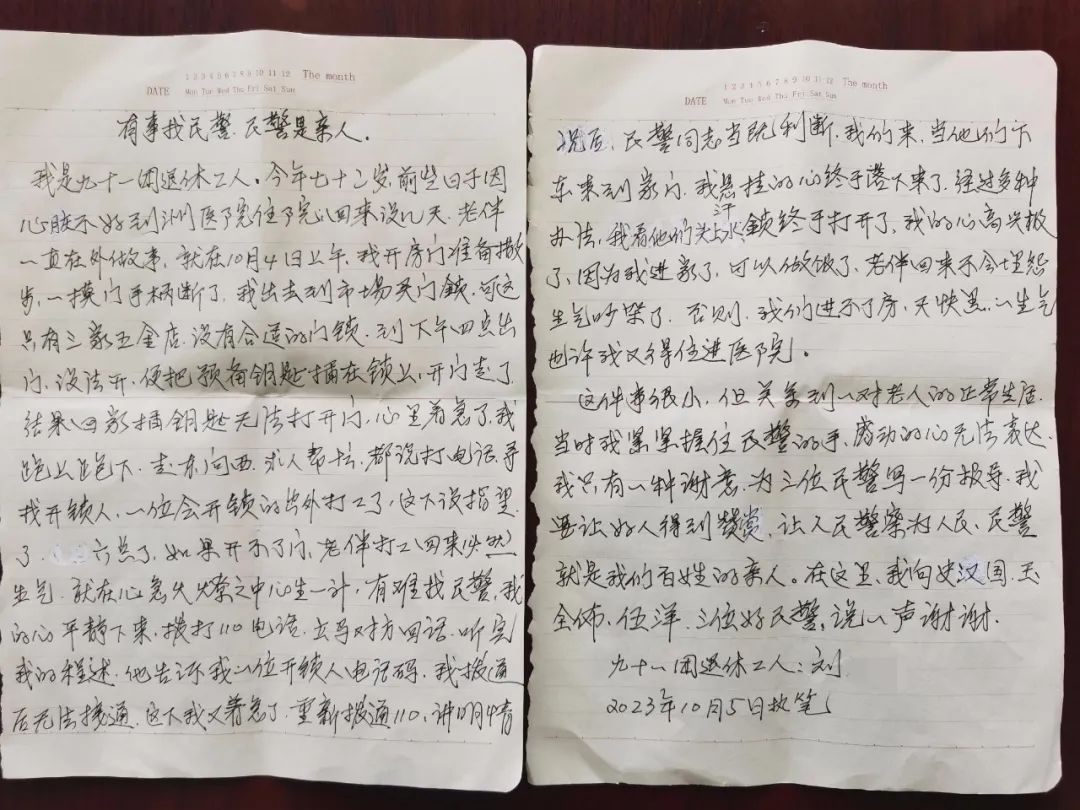 1 2 3 4 5 6 7 8 9 10 11 12 The month
DATE Mon Tue Wed Thu Fri Sat Sun
有事找民警、民警是亲人。
我是九十一团退休工人。今年七十二岁,前些日子因
心脏不好到洲医院住院,回来没几天,老伴
一直在外做事,就在10月4日上午,我开房门准备撒
步,一摸门手柄断了,我出去到市场买门鎖,可这
只有三家五金店,没有合适的门锁,到下午四点出
门,没法开,便把预备钥匙捅在锁上,开门走了
结果回家捅钥匙无法打开门,心里着急了,我
跑上跑下,走东问西,求人帮忙,都说打电话寻
找开锁人,一位会开锁的出外打工了,这下没指望
了 六点了,如果开不了门,老伴打工回来必然
生气,就在心急火燎之中心生一计,有难找民警,我
的心平静下来,拨打110电话,立马对方回话,听完
我的程述,他告诉我一位开锁人电话码,我拨通
后无法接通,这下我又着急了,重新拨通110,讲明情
1 2 3 4 5 6 7 8 9 10 11 12 The month
DATE Mon Tue Wed Thu Fri Sat Sun
况后,民警同志当既判断,我们来,当他们下
车来到家门,我悬挂的心终于落下来了,经过多种
办法,我看他们头上汗水,鎖终于打开了,我的心高兴极
了,因为我进家了,可以做饭了,老伴回来不会埋怨
生气吵架了,否则,我们进不了房,天快黑,一生气
也许我又得住进医院。
这件事很小,但关系到一对老人的正常生活,
当时我紧紧握住民警的手,感动的心无法表达,
我只有一种谢意,为三位民警写一份报导,我
要让好人得到赞赏,让人民警察为人民,民警
就是我们百姓的亲人。在这里,我向史汉国、王
全佈、伍洋,三位好民警,说一声谢谢.
九十一团退休工人:刘
2023年10月5日执笔